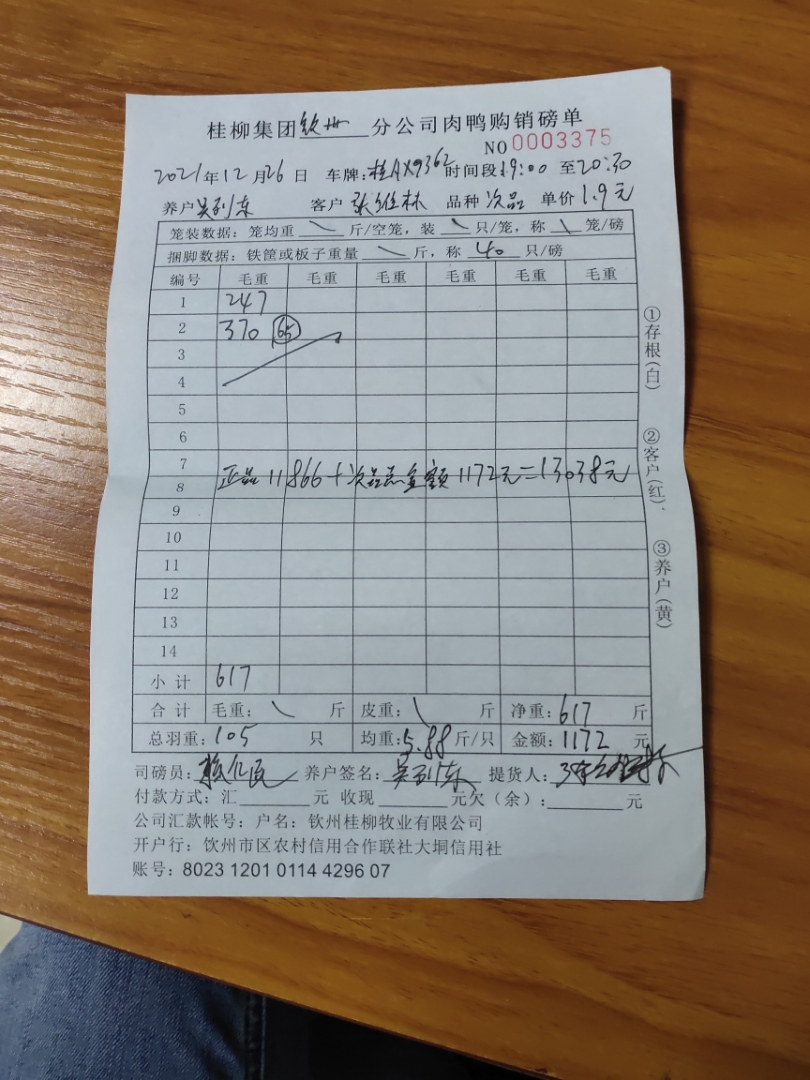 桂柳集团钦州分公司肉鸭购销磅单
NO 0003375
2021年12月26日 车牌:桂AX9362 时间段19:00至20:30
养户吴列东 客户 张维林 品种 次品 单价1.9元
笼装数据:笼均重\斤/空笼,装\只/笼,称\笼/磅
捆脚数据:铁筐或板子重量\斤,称40只/磅
编号 毛重 毛重 毛重 毛重 毛重 毛重
1 247
2 370 65
3
4
5
6
7
正品11866+次品总金额1172元=13038元
8
9
10
11
12
13
14
小计 617
合计 毛重:\斤 皮重:\斤 净重:617斤
总羽重:105只 均重:5.88斤/只 金额:1172元
司磅员: 养户签名:吴列东 提货人:
付款方式:汇 元 收现 元欠(余): 元
公司汇款帐号:户名:钦州桂柳牧业有限公司
开户行:钦州市区农村信用合作联社大垌信用社
账号:8023 1201 0114 4296 07
①存根(白)
②客户(红)、
③养户(黄)